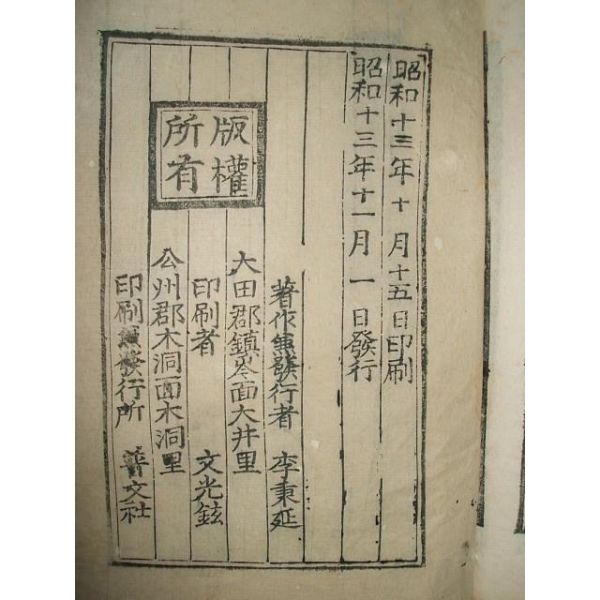 昭和十三年十月十五日印刷
昭和十三年十一月一日發行
版權
所有
著作兼發行者 李秉延
大田郡鎭岑面大井里
印刷者 文光鉉
公州郡木洞面木洞里
印刷兼發行所 普文社